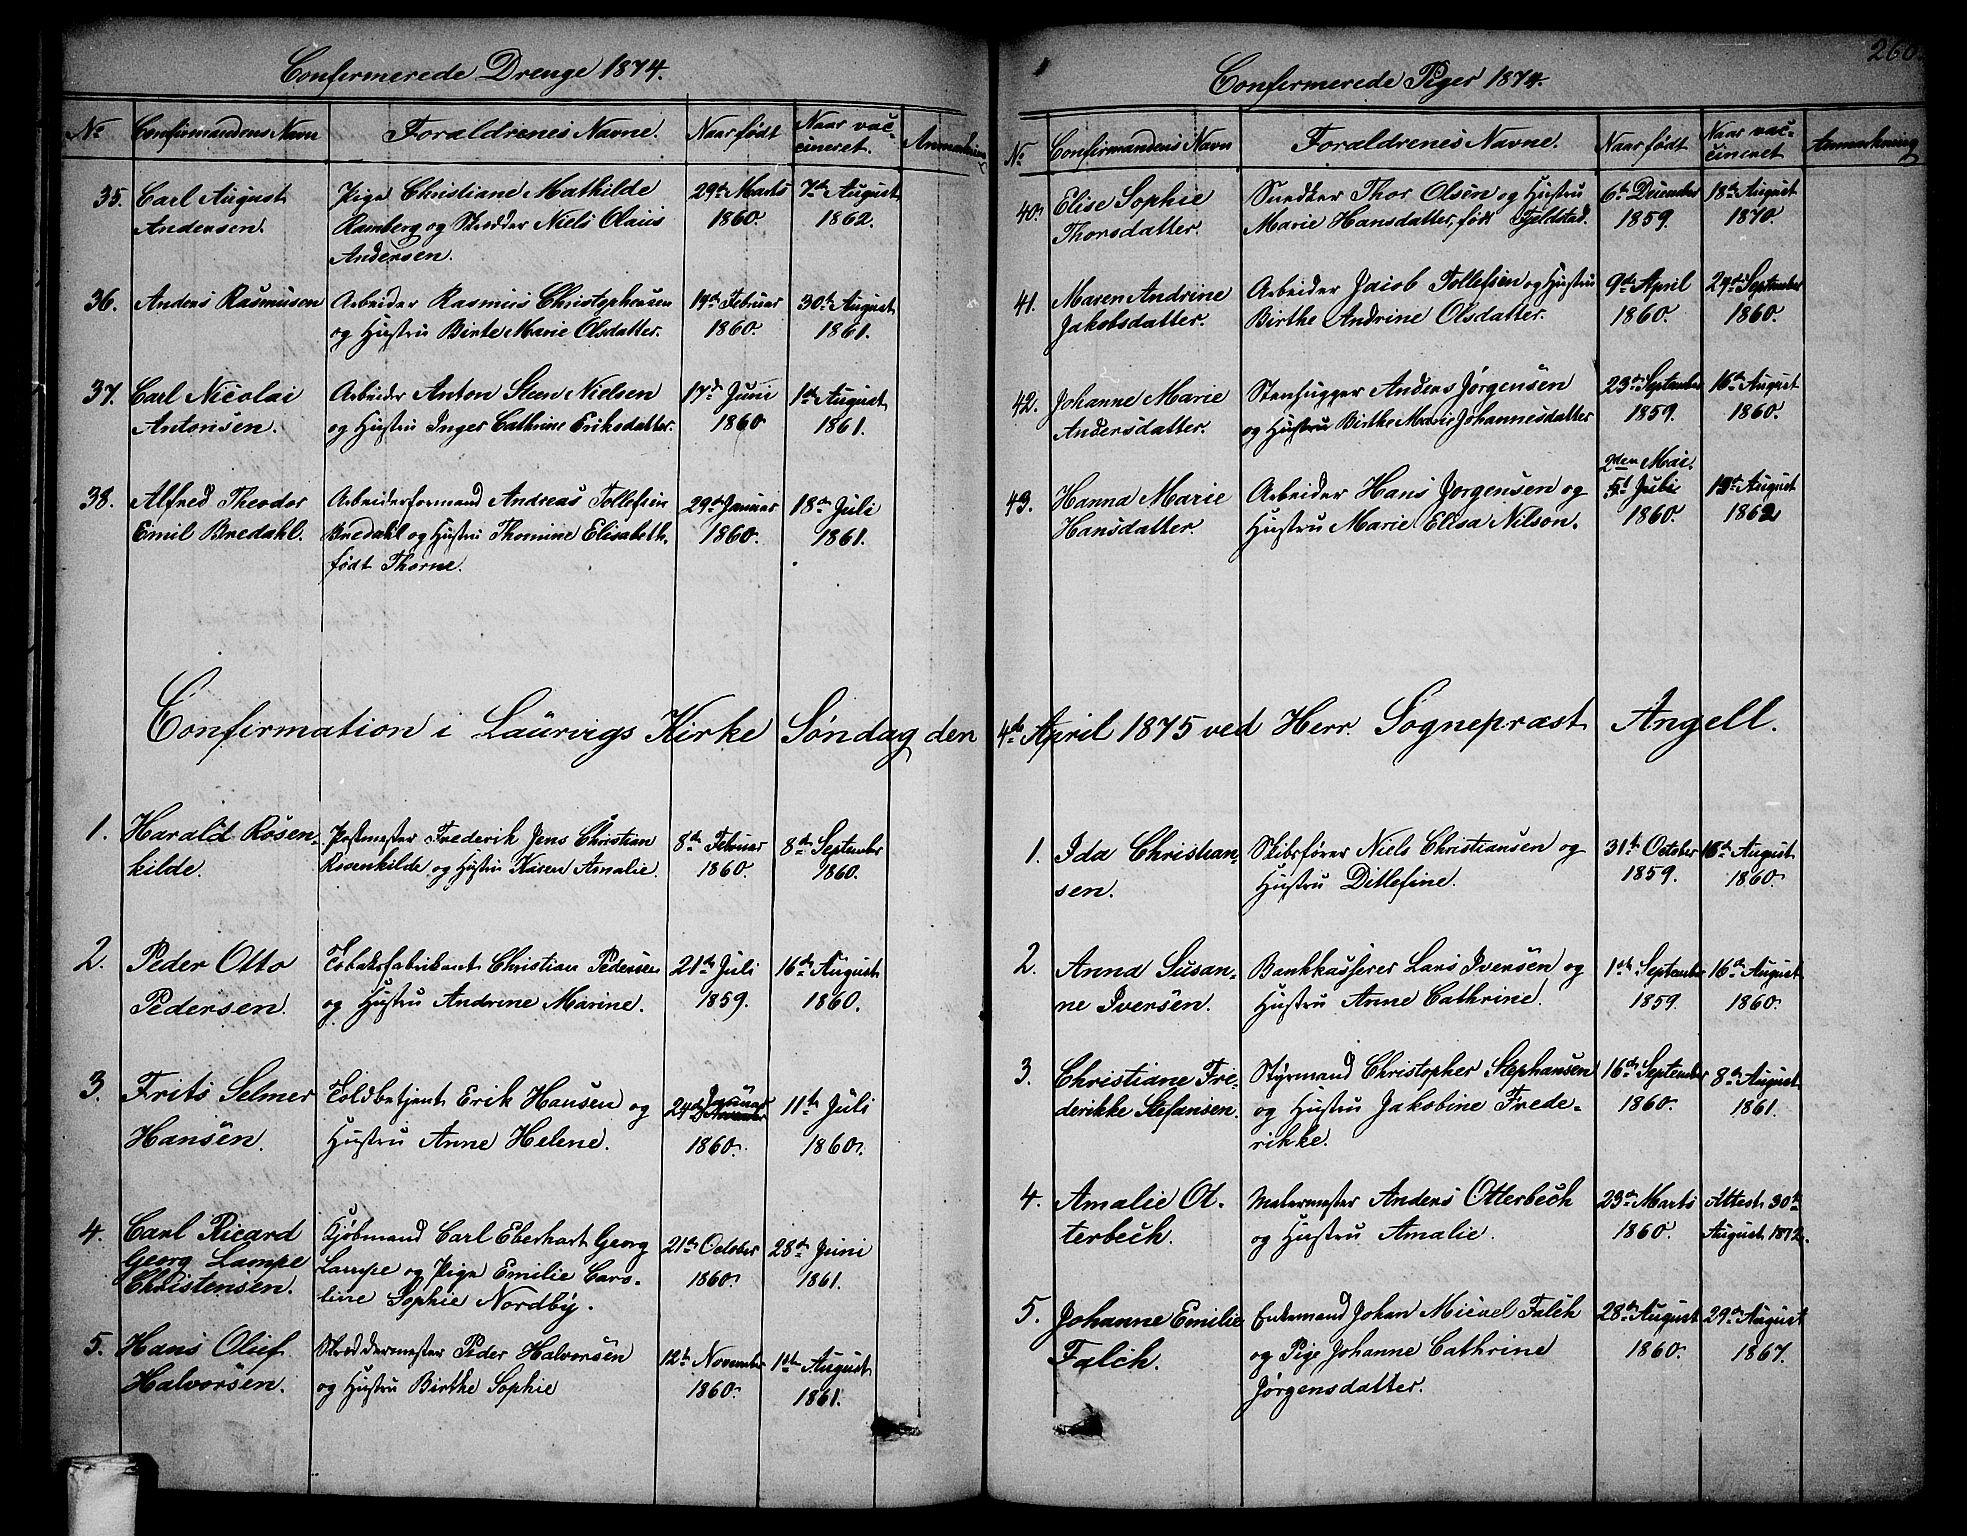 260.
Confirmerede Drenge 1874.
No Confirmandens Navn Forældrenes Navne. Naar født Naar vac-
cineret. Anmærkning
35. Carl August Pige Christiane Mathilde 29de Marts 7de August
Andersen. Ramberg og Skrædder Niels Olaus 1860. 1862.
Andersen.
36. Anders Rasmusen Arbeider Rasmus Christophersen 19de Februar 30te August
og Hustru Birte Marie Olsdatter. 1860. 1861.
37. Carl Nicolai Arbeider Anton Steen Nielsen 17de Juni 1ste August
Antonsen. og Hustru Inger Cathrine Eriksdatter. 1860 1861.
38. Alfred Theodor Arbeiderformand Andreas Tollefsen 29de Januar 18de Juli
Emil Bredahl. Bredahl og Hustru Thomine Elisabeth, 1860. 1861.
født Thorne.
Confirmerede Piger 1874.
No Confirmandens Navn Forældrenes Navne. Naar født Naar vac-
cineret Anmærkning
40. Elise Sophie Snedker Thor Olsen og Hustru 6te December 18de August
Thorsdatter. Marie Hansdatter, født Fjeldstad. 1859. 1870
41. Maren Andrine Arbeider Jacob Tollefsen og Hustru 9de April 29de September
Jakobsdatter. Birthe Andrine Olsdatter. 1860. 1860.
42. Johanne Marie Stenhugger Anders Jørgensen 23de September 16de August
Andersdatter. og Hustru Birthe Marie Johannesdatter 1859. 1860.
2den Mai.
43. Hanna Marie Arbeider Hans Jørgensen og Juli August
Hansdatter. Hustru Marie Elisa Nilson. 1860. 1862
Confirmation i Laurvigs Kirke Søndag den 4de April 1875 ved Herr. Sognepræst Angell.
1. Harald Rosen- Postmester Frederik Jens Christian 8de Februar 8de September
kilde. Rosenkilde og Hustru Karen Amalie. 1860. 1860.
2. Peder Otto Tobaksfabrikant Christian Pedersen 21de Juli 16de August
Pedersen. og Hustru Andrine Marine. 1859. 1860.
3. Frits Selmer Toldbetjent Erik Hansen og 24de Januar 11te Juli
Hansen. Hustru Anne Helene. 1860. 1860.
4. Carl Ricard Kjøbmand Carl Eberhart Georg 21de October 28de Juni
Georg Lampe Lampe og Pige Emilie Caro- 1860. 1861.
Christensen. line Sophie Nordby.
5. Hans Oluf Skræddermester Peder Halvorsen 12te November 1ste August
Halvorsen. og Hustru Birthe Sophie 1860. 1861.
1. Ida Christian- Skibsfører Niels Christiansen og 31te October 16de August
sen. Hustru Ditlefine. 1859. 1860.
2. Anna Susan- Bankkasserer Lars Iversen og 1ste September 16de August
ne Iversen. Hustru Anne Cathrine. 1859. 1860.
3. Christiane Fre- Styrmand Christopher Stephansen 16de September 8de August
derikke Stefansen. og Hustru Jakobine Frede- 1860. 1861.
rikke.
4. Amalie Ot- Malermester Anders Otterbech 23de Marts Attest 30te
terbech. og Hustru Amalie. 1860. August 1872.
5. Johanne Emilie Enkemand Johan Micael Falch 28de August 29de August
Falch. og Pige Johanne Cathrine 1860. 1867.
Jørgensdatter.